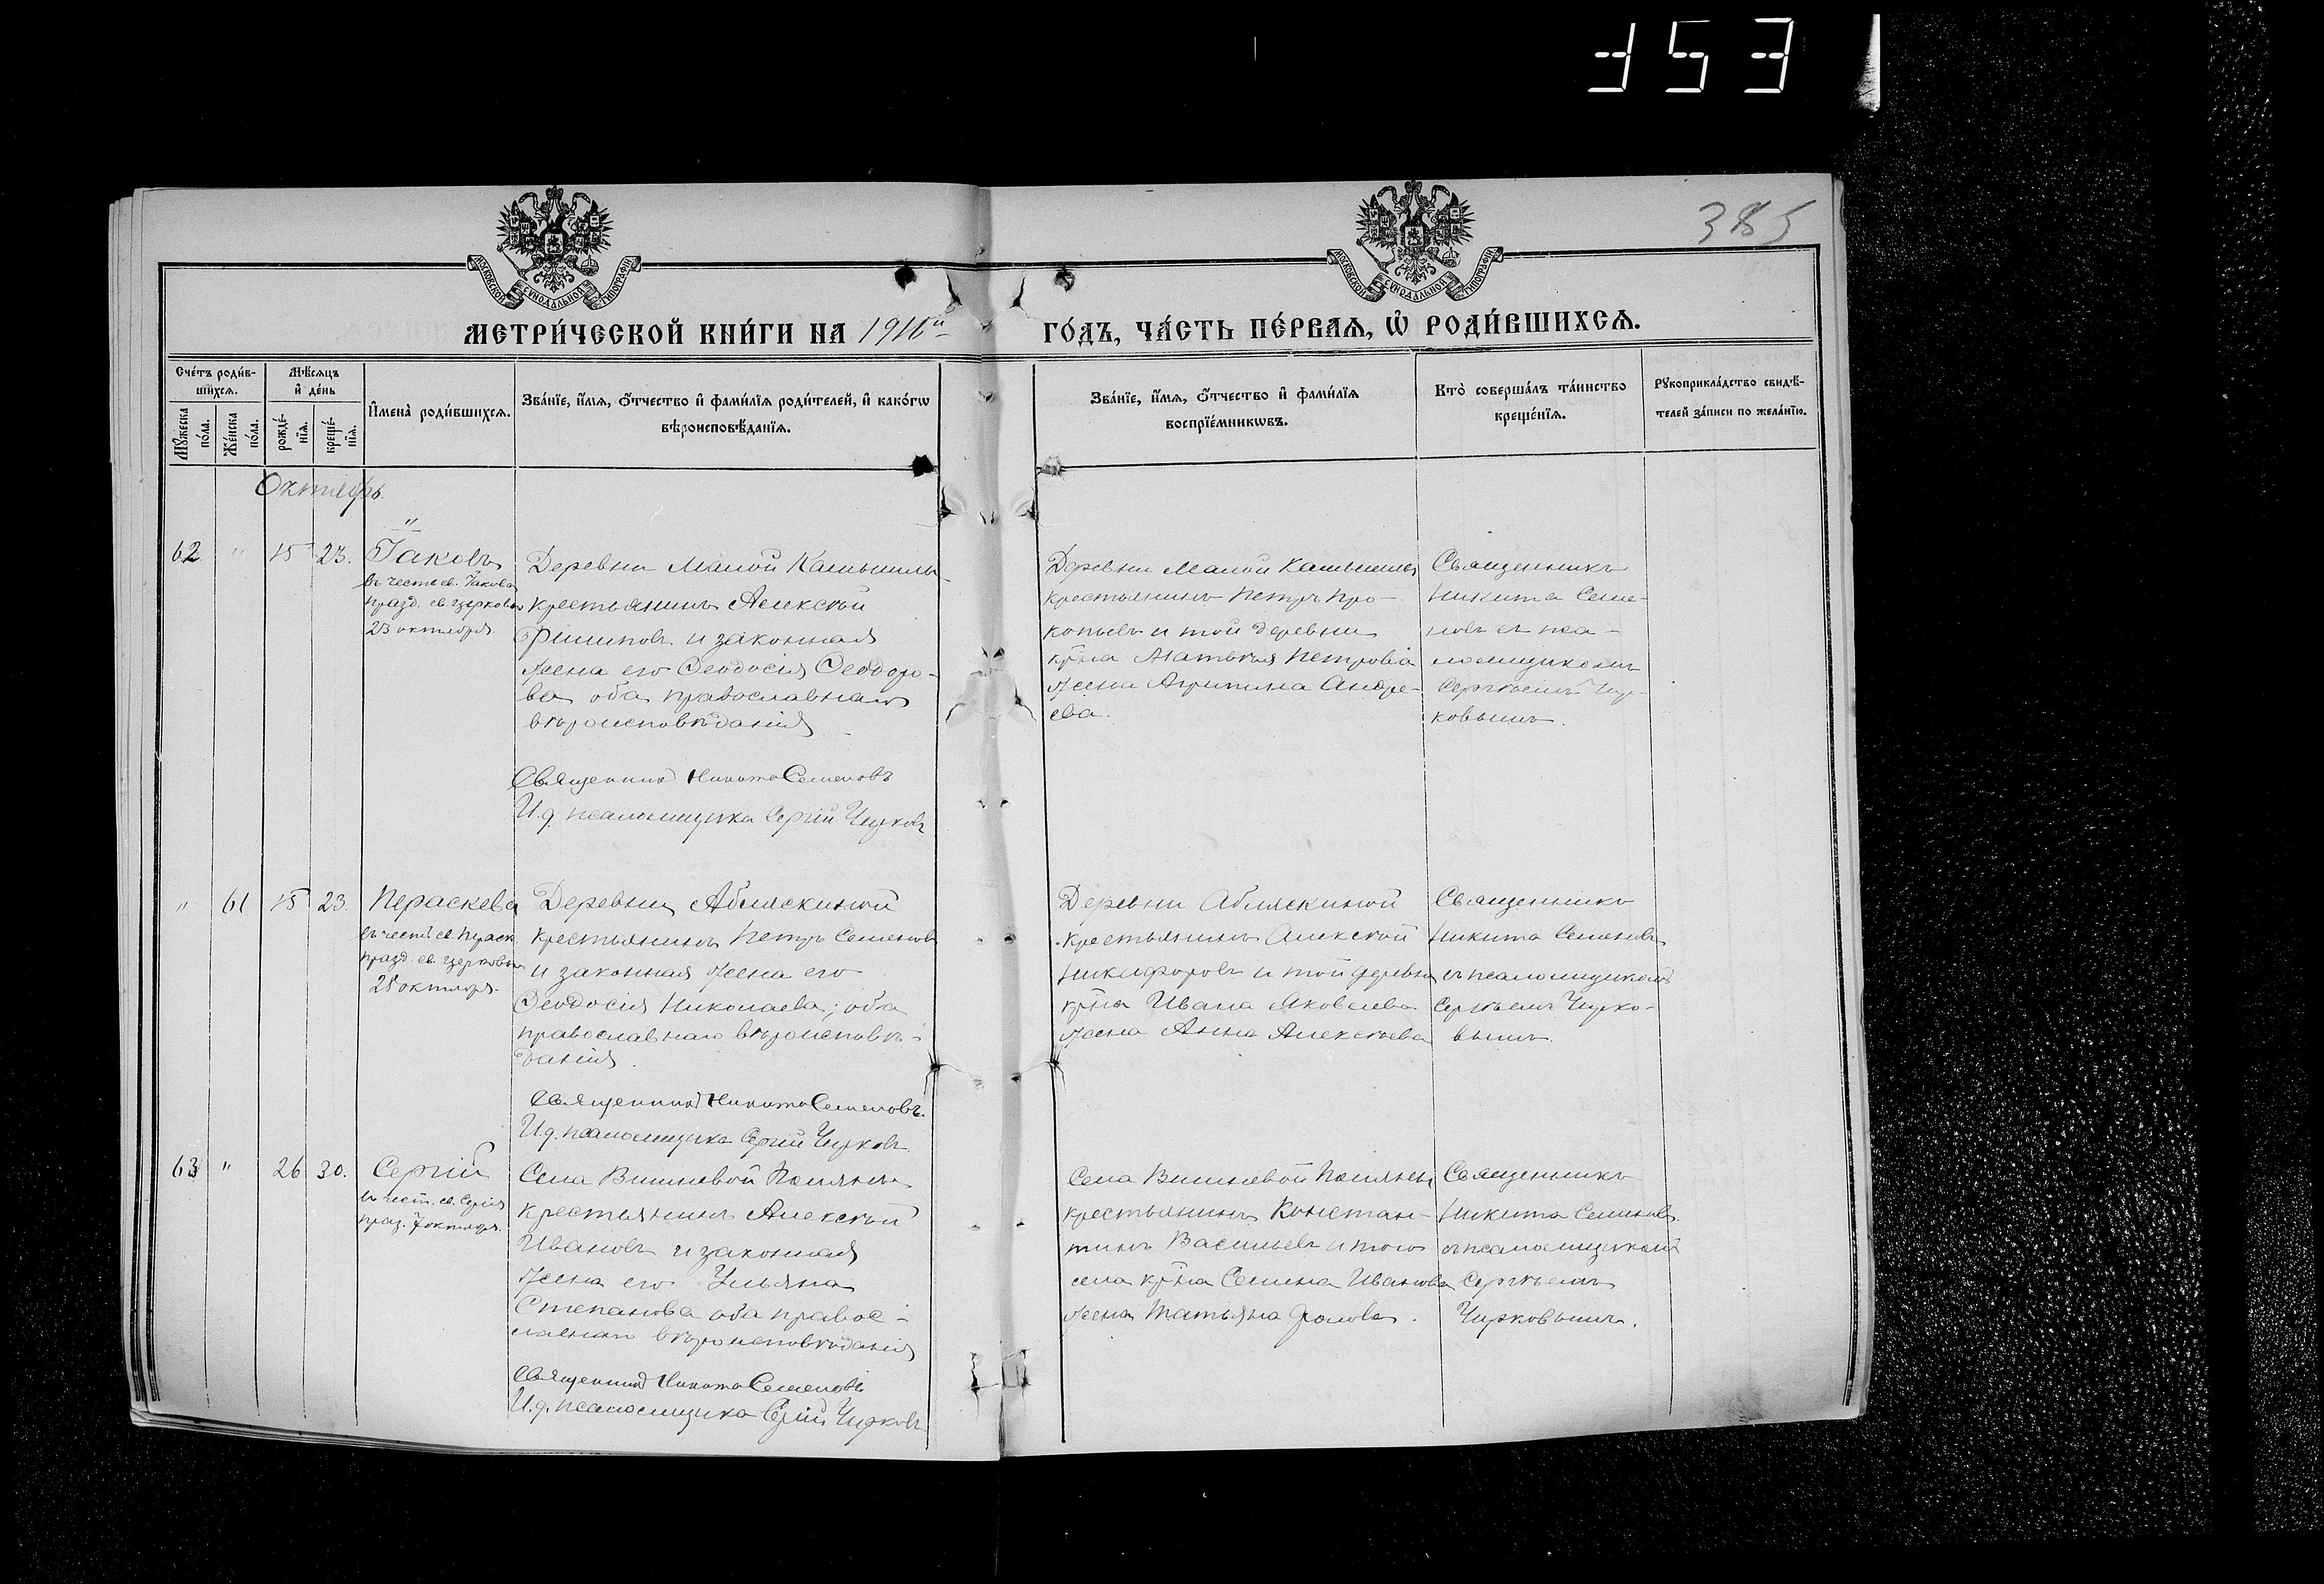 353
385
МОСКОВСКОЙ СѴНОДАЛЬНОЙ ТИПОГРАФІИ
МОСКОВСКОЙ СѴНОДАЛЬНОЙ ТИПОГРАФІИ
МЕТРИ́ЧЕСКОЙ КНИ́ГИ НА 1916й
ГО́ДЪ, ЧА́СТЬ ПЕ́РВАѦ, Ѽ РОДИ́ВШИХСѦ.
Сче́тъ роди́в-
шихсѧ.
Мꙋ́жеска по́ла.
Же́нска по́ла.
Мѣ́сѧцъ
и҆ де́нь
рожде́-
нїѧ.
креще́-
нїѧ.
И҆мена̀ роди́вшихсѧ.
Зва́нїе, и҆́мѧ, ѻ҆́тчество и҆ фами́лїѧ роди́телей, и҆ како́гѡ
вѣроисповѣ́данїѧ.
Зва́нїе, и҆́мѧ, ѻ҆́тчество и҆ фами́лїѧ
воспрїе́мникѡвъ.
Кто̀ соверша́лъ та́инство
креще́нїѧ.
Рꙋкоприкла́дство свидѣ́-
телей за́писи по жела́нїю.
Октябрь.
"
62 " 15 23. Іаковъ
въ честь св. Іакова
празд. св. церковью
23 октября
Деревни Малой Камышлы
крестьянинъ Алексѣй
Филиповъ и законная
жена его Ѳеодосія Ѳеодоро-
ва оба православнаго
вѣроисповѣданія
Священникъ Никита Семеновъ
И.д. псаломщика Сергій Чирковъ
Деревни Малой Камышлы
крестьянинъ Петръ Про-
копьевъ и той деревни
кр-на Матвѣя Петрова
жена Агрипина Андре-
ева.
Священникъ
Никита Семе-
новъ съ пса-
ломщикомъ
Сергѣемъ Чир-
ковымъ.
" 61 15 23. Пераскева
въ честь св. Параск.
празд. св. церковью
28 октября.
Деревни Абляскиной
крестьянинъ Петръ Семеновъ
и законная жена его
Ѳеодосія Николаева; оба
православнаго вѣроисповѣ-
данія.
Священникъ Никита Семеновъ.
И.д. псаломщика Сергій Чирковъ
Деревни Абляскиной
крестьянинъ Алексѣй
Никифоровъ и той деревни
кр-на Ивана Яковлева
жена Анна Алексѣева
Священникъ
Никита Семеновъ
съ псаломщикомъ
Сергѣемъ Чирко-
вымъ.
63 " 26 30. Сергій
въ чест. св. Сергія
праз. 7 октября.
Села Вишневой Поляны
крестьянинъ Алексѣй
Ивановъ и законная
жена его Ульяна
Степанова оба правос-
лавнаго вѣроисповѣданія
Священникъ Никита Семеновъ
И.д. псаломщика Сергій Чирковъ
Села Вишневой Поляны
крестьянинъ Констан-
тинъ Васильевъ и того
села кр-на Семена Иванова
жена Татьяна Фролова.
Священникъ
Никита Семеновъ
съ псаломщикомъ
Сергѣемъ
Чирковымъ.